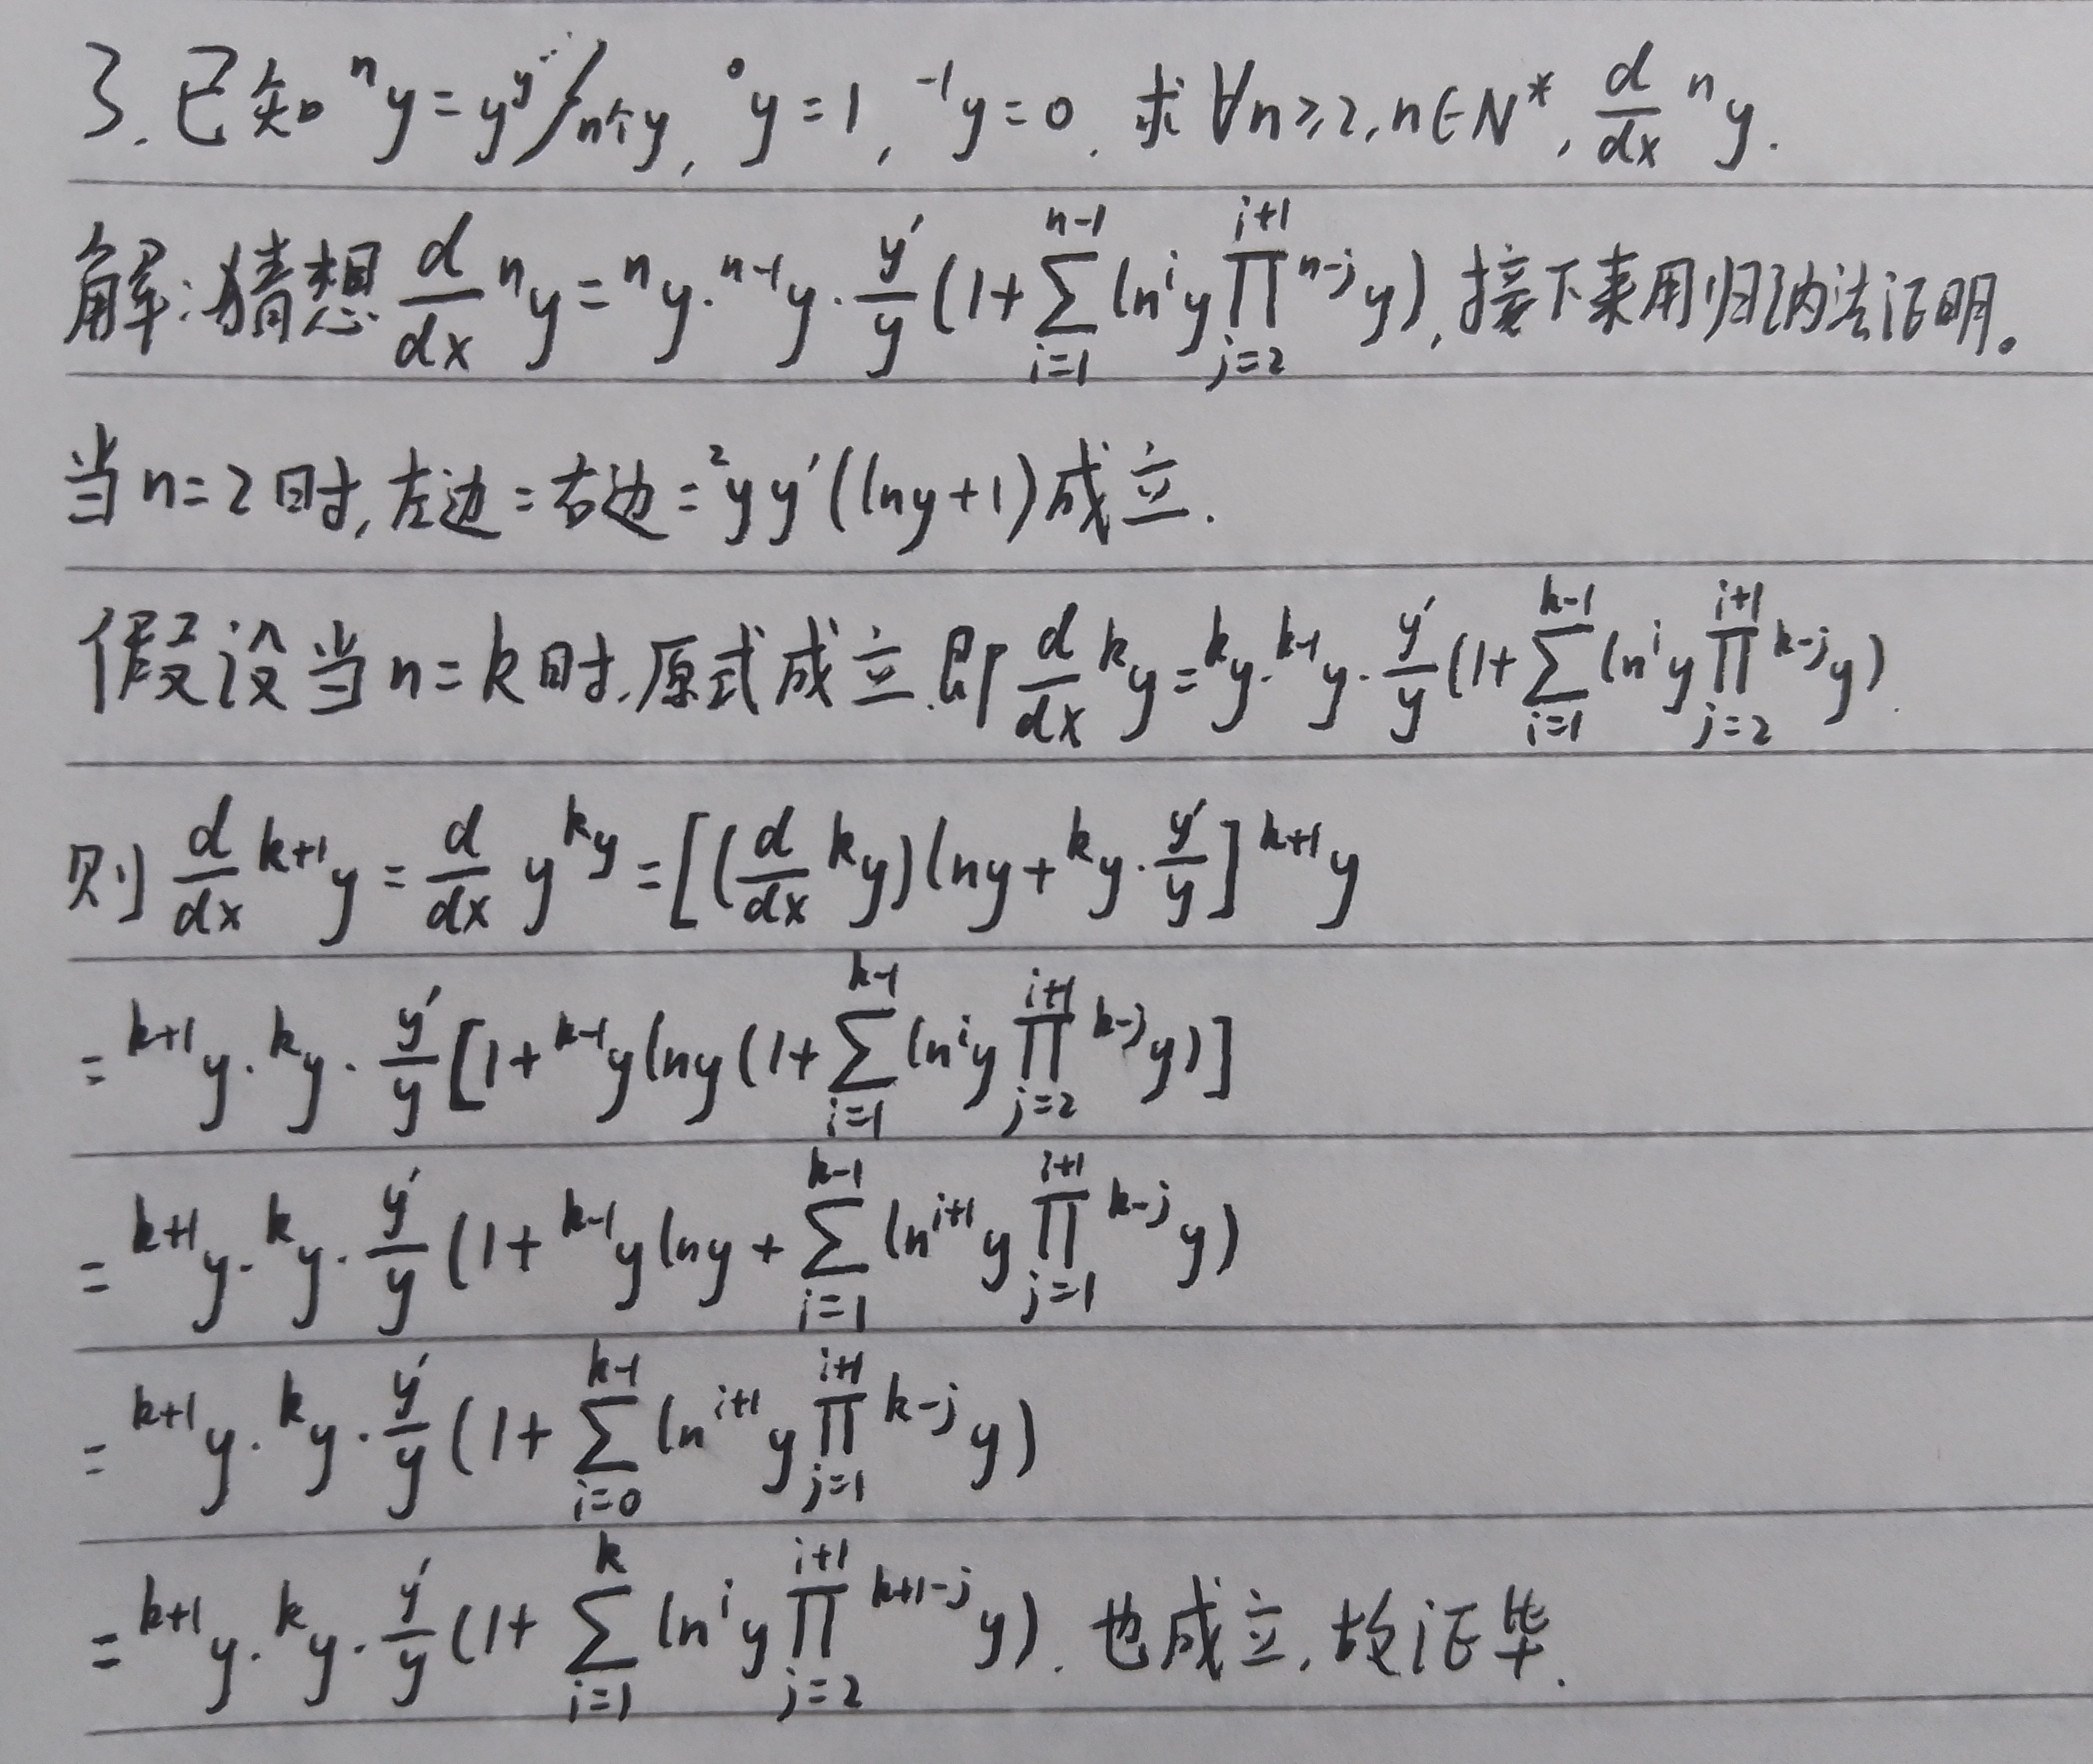 3. 已知 ⁿy = y^{y^{⋰}}/n个y, ⁰y = 1, ⁻¹y = 0. 求 ∀n ≥ 2, n∈N*, \frac{d}{dx} ⁿy.
解: 猜想 \frac{d}{dx} {}^{n}y = {}^{n}y · {}^{n-1}y · \frac{y'}{y} (1 + \sum_{i=1}^{n-1} ln^{i}y \prod_{j=2}^{i+1} {}^{n-j}y), 接下来用归纳法证明。
当 n = 2 时, 左边 = 右边 = {}^{2}y y' (lny + 1) 成立.
假设当 n = k 时, 原式成立. 即 \frac{d}{dx} {}^{k}y = {}^{k}y · {}^{k-1}y · \frac{y'}{y} (1 + \sum_{i=1}^{k-1} ln^{i}y \prod_{j=2}^{i+1} {}^{k-j}y).
则 \frac{d}{dx} {}^{k+1}y = \frac{d}{dx} y^{{}^{k}y} = [(\frac{d}{dx} {}^{k}y) lny + {}^{k}y · \frac{y'}{y}] {}^{k+1}y
= {}^{k+1}y · {}^{k}y · \frac{y'}{y} [1 + {}^{k-1}y lny (1 + \sum_{i=1}^{k-1} ln^{i}y \prod_{j=2}^{i+1} {}^{k-j}y)]
= {}^{k+1}y · {}^{k}y · \frac{y'}{y} (1 + {}^{k-1}y lny + \sum_{i=1}^{k-1} ln^{i+1}y \prod_{j=1}^{i+1} {}^{k-j}y)
= {}^{k+1}y · {}^{k}y · \frac{y'}{y} (1 + \sum_{i=0}^{k-1} ln^{i+1}y \prod_{j=1}^{i+1} {}^{k-j}y)
= {}^{k+1}y · {}^{k}y · \frac{y'}{y} (1 + \sum_{i=1}^{k} ln^{i}y \prod_{j=2}^{i+1} {}^{k+1-j}y). 也成立, 故证毕.